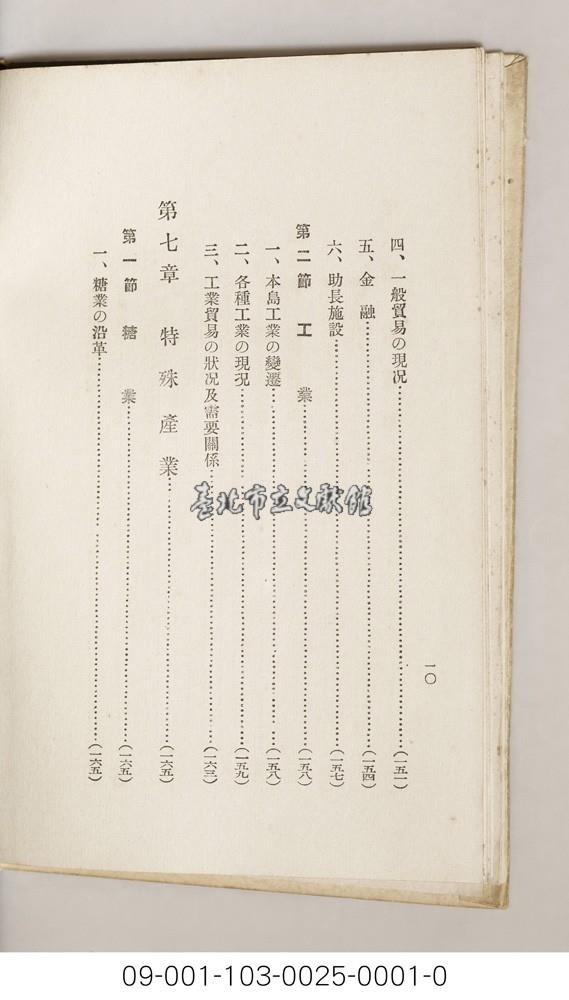 四、一般貿易の現况……(一五一)
五、金融……(一五四)
六、助長施設……(一五七)
第二節 工業……(一五八)
一、本島工業の變遷……(一五八)
二、各種工業の現况……(一五九)
三、工業貿易の狀况及需要關係……(一六三)
第七章 特殊產業……(一六五)
第一節 糖業……(一六五)
一、糖業の沿革……(一六五)
一〇
臺北市立文獻館
09-001-103-0025-0001-0